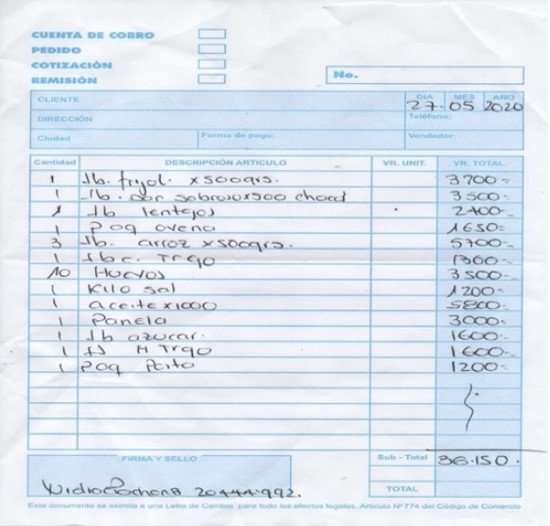 CUENTA DE COBRO
PEDIDO
COTIZACIÓN
REMISIÓN
No.
CLIENTE
DIA MES AÑO
27. 05 2020
DIRECCIÓN
Teléfono:
Ciudad Forma de pago: Vendedor:
Cantidad DESCRIPCIÓN ARTICULO VR. UNIT. VR. TOTAL.
1 lb. frijol. x500grs. 3700-
1 lb. sobrosox500 3500-
1 lb lentejas 2400-
1 Paq avena 1650-
3 lb. arroz x500grs. 5700-
1 lb c. Trgo 1300-
10 Huevos 3500-
1 Kilo sal 1200-
1 aceite x1000 5800-
1 Panela 3000-
1 lb azucar. 1600-
1 H Trgo 1600-
1 Paq Pasta 1200-
FIRMA Y SELLO
Sub - Total 36.150.
20.444.992.
TOTAL
Este documento se asimila a una Letra de Cambio para todo los efectos legales. Articulo Nº 774 del Código de Comercio